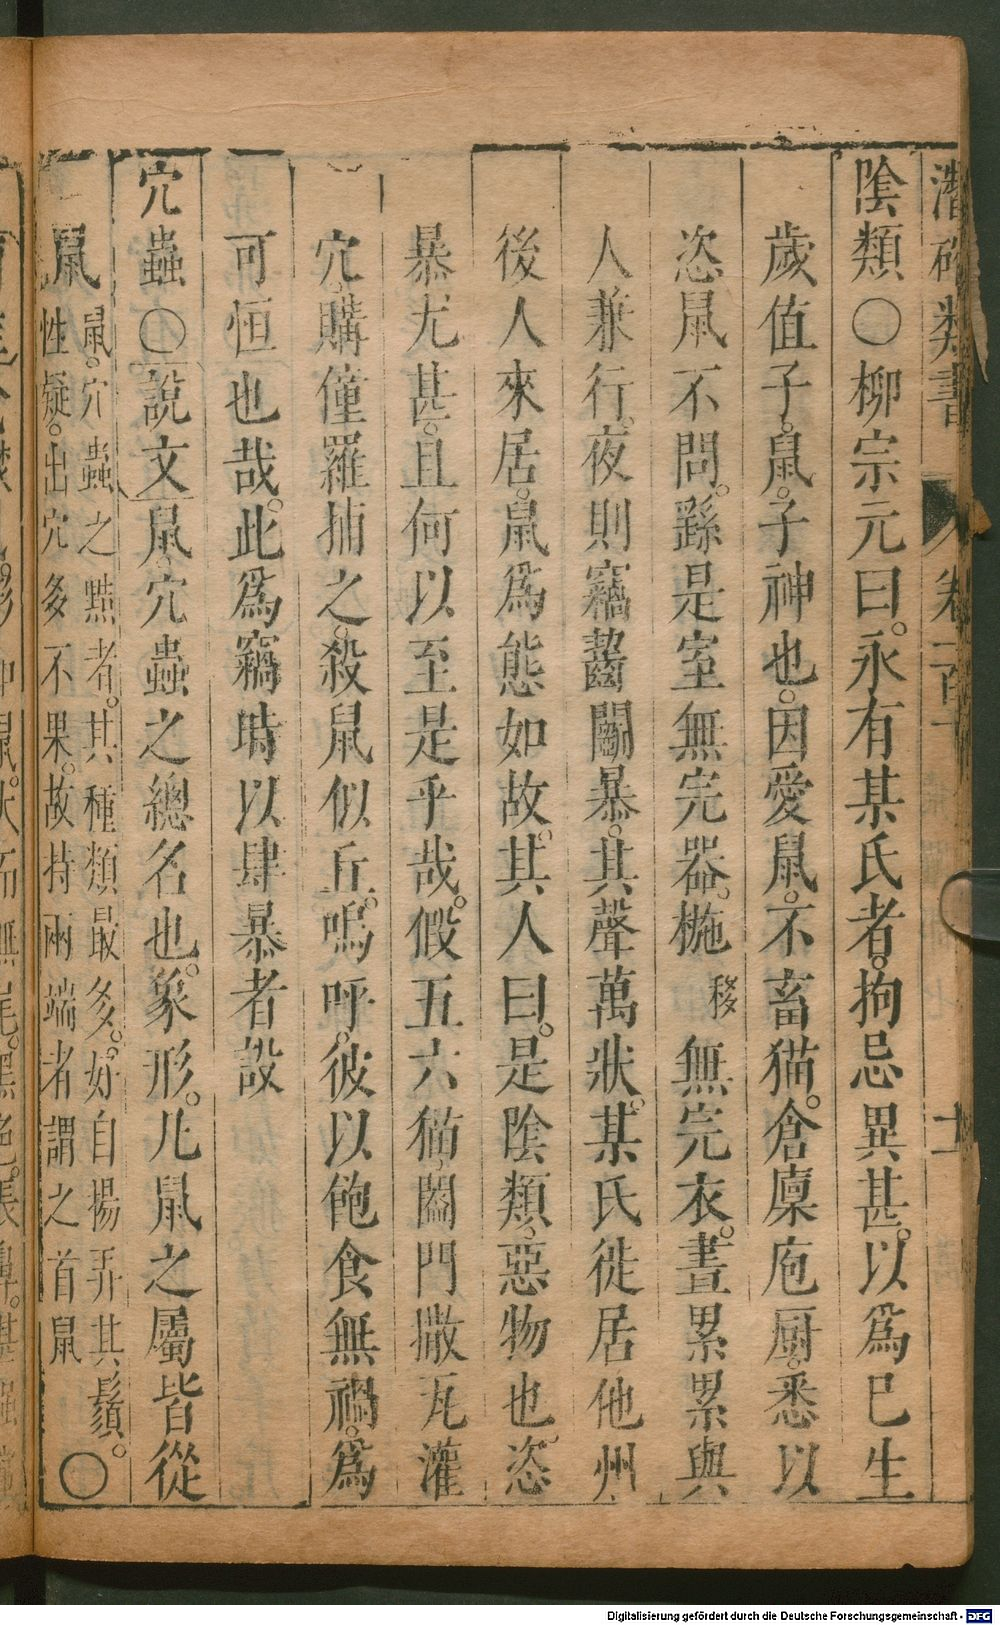 潛確類書 卷一百十 十一
陰類〇柳宗元曰永有某氏者拘忌異甚以爲已生
歲值子鼠子神也因愛鼠不畜猫倉廩庖厨悉以
恣鼠不問繇是室無完器椸移無完衣晝累累與
人兼行夜則竊齧鬬暴其聲萬狀某氏徙居他州
後人來居鼠爲態如故其人曰是陰類惡物也恣
暴尤甚且何以至是乎哉假五六猫闔門撒瓦灌
穴購僮羅捕之殺鼠似丘嗚呼彼以飽食無禍爲
可恒也哉此爲竊時以肆暴者設
穴蟲〇說文鼠穴蟲之總名也象形凡鼠之屬皆從
鼠 鼠穴蟲之黠者其種類最多好自揚弄其鬚
性疑出穴多不果故持兩端者謂之首鼠〇
Digitalisierung gefördert durch die Deutsche Forschungsgemeinschaft - DFG